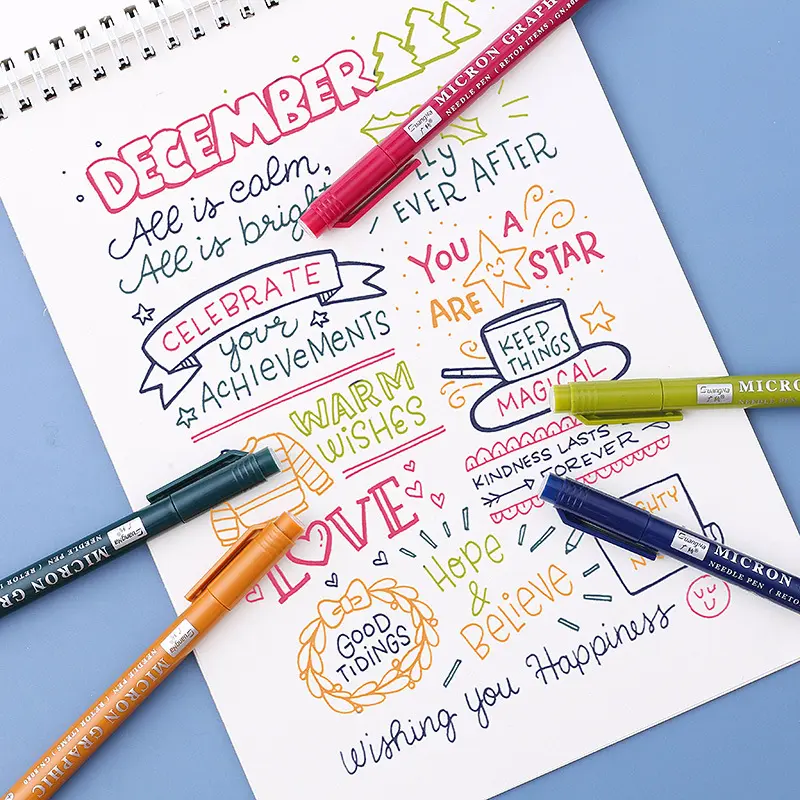 DECEMBER
All is calm,
All is bright
EVER AFTER
YOU A
ARE STAR
CELEBRATE
your
ACHIEVEMENTS
KEEP
THINGS
MAGICAL
WARM
WISHES
KINDNESS LASTS
FOREVER
LOVE
Hope
&
Believe
GOOD
TIDINGS
Wishing you Happiness
MICRON GRAPH
NEEDLE PEN ( RETOR ITEMS ) GN-
Guangna
MICRO
NEEDLE PEN ( RETOR
Guangna
MICRON
NEEDLE PEN ( RETOR
Guangna
MICRON GRA
Guangna
MICRON GRAPHIC
NEEDLE PEN ( RETOR ITEMS )
Guangna